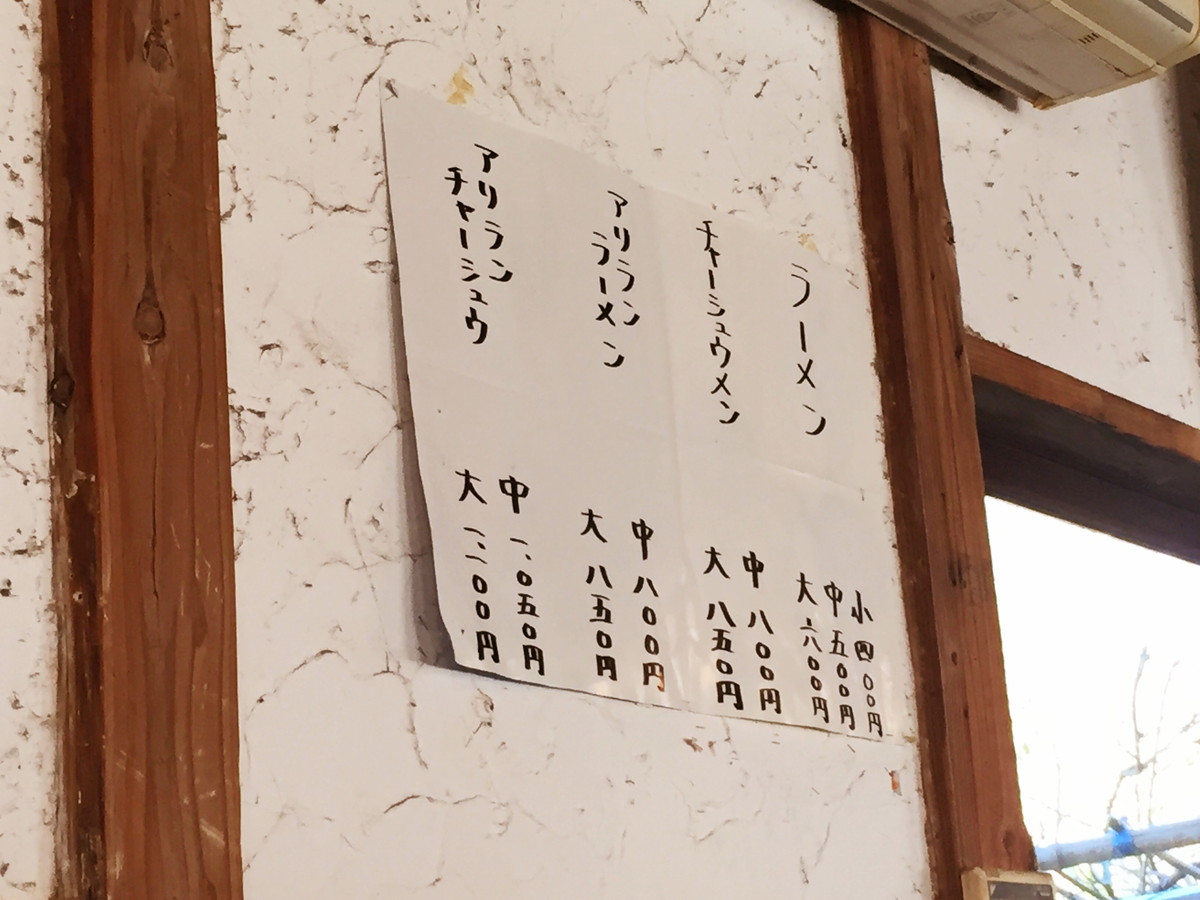 ラーメン
小 四〇〇円
中 五〇〇円
大 六〇〇円
チャーシュウメン
中 八〇〇円
大 八五〇円
アリラン
ラーメン
中 八〇〇円
大 八五〇円
アリラン
チャーシュウ
中 一、〇五〇円
大 一、一〇〇円